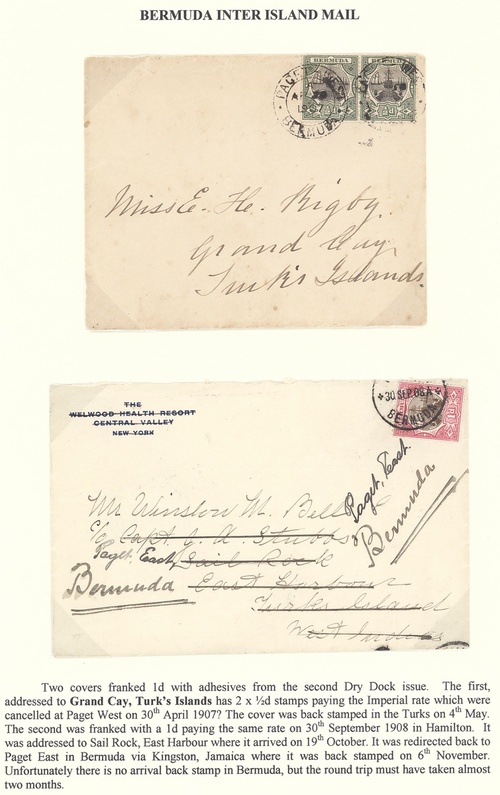 BERMUDA INTER ISLAND MAIL
BERMUDA
BERMUDA
PAGET WEST
BERMUDA
Miss E. He. Rigby.
Grand Cay,
Turk's Islands.
THE
WELWOOD HEALTH RESORT
CENTRAL VALLEY
NEW YORK
30 SEP 08
BERMUDA
Mr Winslow M. Bell
c/o Capt C. A. Stubbs
Paget, East, Sail Rock
Bermuda East Harbour
Turks Island
West Indies
Paget, East.
Bermuda
Two covers franked 1d with adhesives from the second Dry Dock issue. The first,
addressed to Grand Cay, Turk's Islands has 2 x ½d stamps paying the Imperial rate which were
cancelled at Paget West on 30th April 1907? The cover was back stamped in the Turks on 4th May.
The second was franked with a 1d paying the same rate on 30th September 1908 in Hamilton. It
was addressed to Sail Rock, East Harbour where it arrived on 19th October. It was redirected back to
Paget East in Bermuda via Kingston, Jamaica where it was back stamped on 6th November.
Unfortunately there is no arrival back stamp in Bermuda, but the round trip must have taken almost
two months.